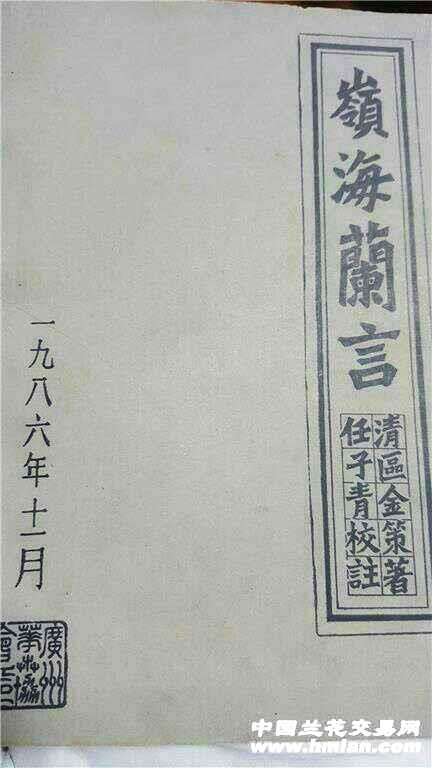 嶺海蘭言
清區金策著
任子青校註
一九八六年十一月
廣州
中国兰花交易网
www.hmlan.com